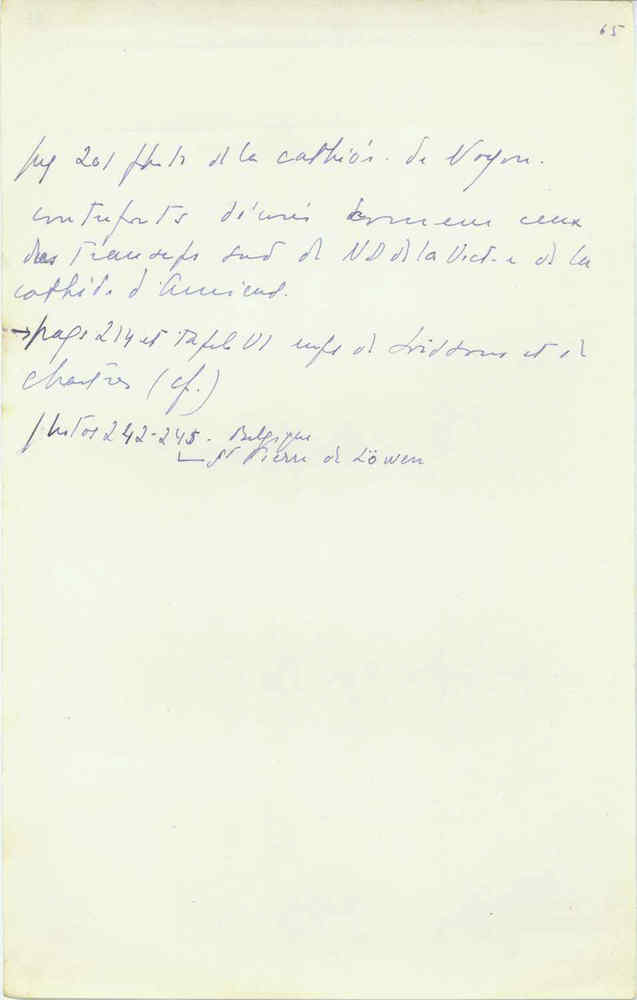 65
pag 201 photo de la cathédr. de Noyon.
contreforts décorés comme ceux
des transepts sud de ND de la Vict. de la
cathéd. d'Amiens.
→ page 214 et Tafel VI de et de
Chartres (cf.)
photos 242-245. Belgique
St Pierre de Löwen